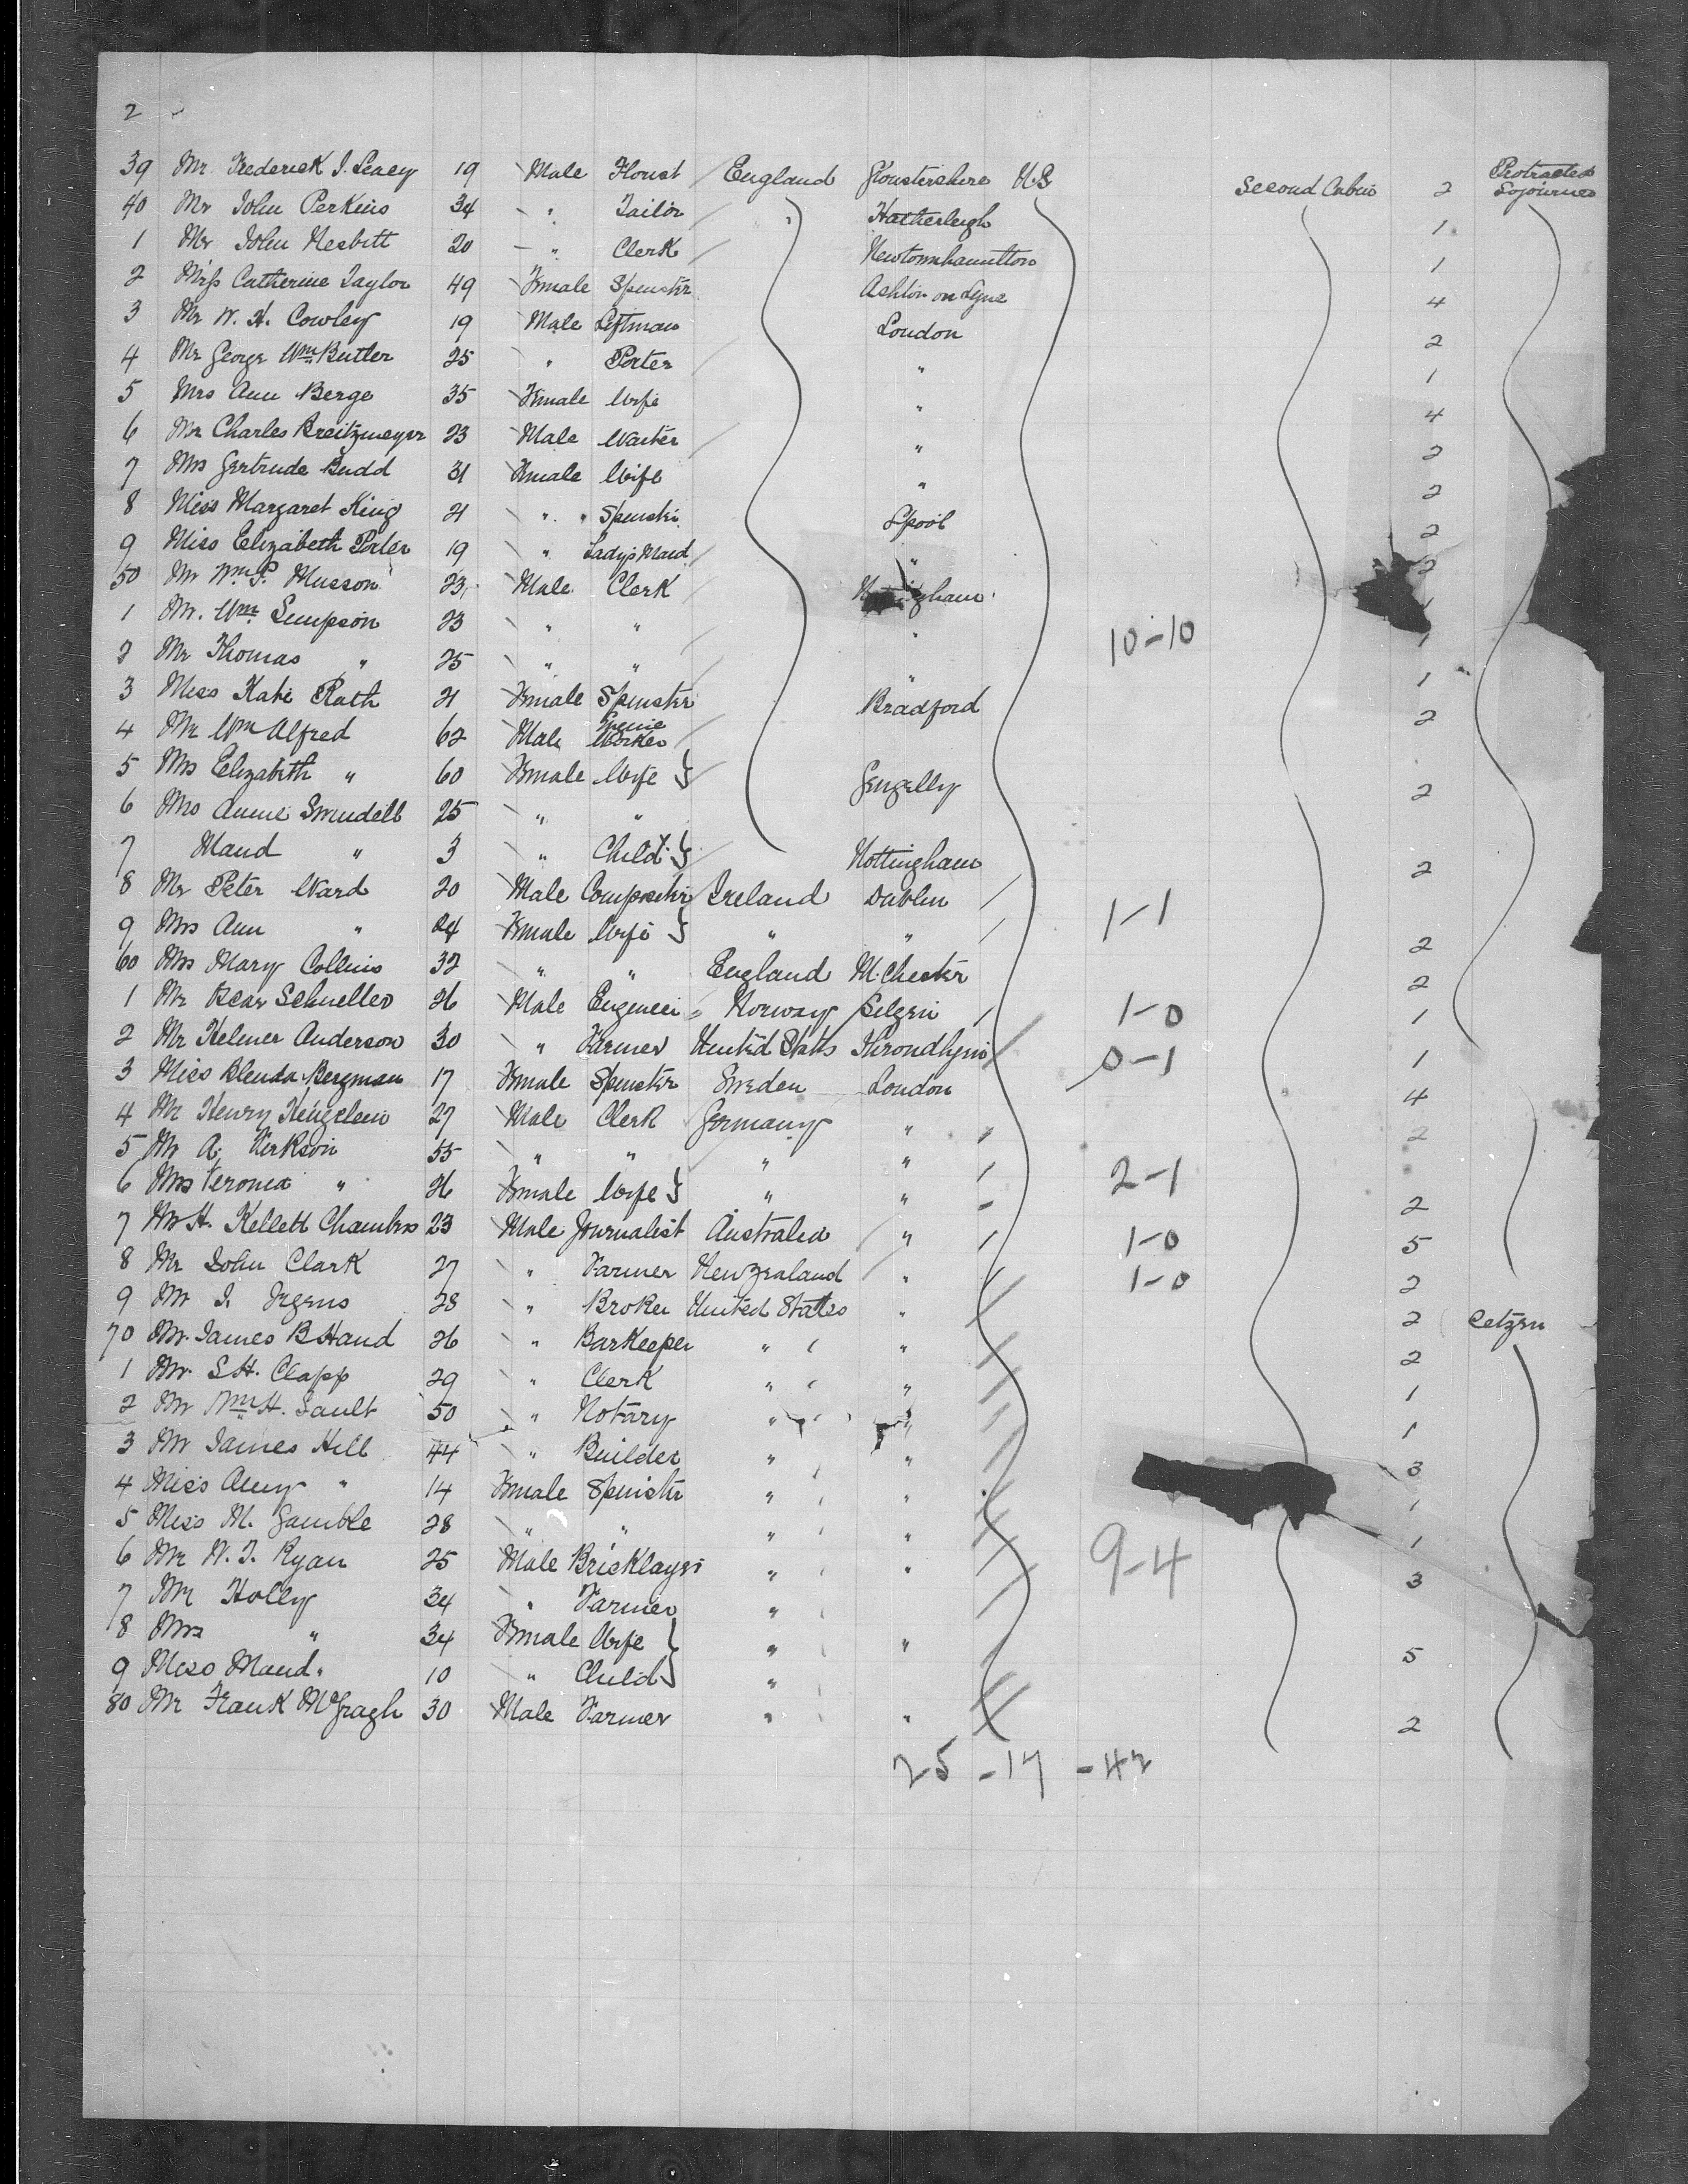 2
39 Mr Frederick J. Seacy 19 Male Florist England Gloustershire U.S. Second Cabin 2 Protracted Sojourner
40 Mr John Perkins 34 " Tailor " Hatherleigh 1
1 Mr John Nesbitt 20 " Clerk Newtownhamilton 1
2 Miss Catherine Taylor 49 Female Spinster Ashton on Lyne 4
3 Mr W. H. Cowley 19 Male Liftman London 2
4 Mr George Wm Butler 25 " Porter " 1
5 Mrs Ann Berge 35 Female Wife " 4
6 Mr Charles Breitzmeyer 23 Male Waiter " 2
7 Mrs Gertrude Budd 31 Female Wife " 2
8 Miss Margaret King 21 " Spinster L'pool 2
9 Miss Elizabeth Porter 19 " Lady's Maid " 2
50 Mr Wm P. Musson 23 Male Clerk Nottingham 1
1 Mr. Wm Simpson 23 " " " 10-10 1
2 Mr Thomas " 25 " " " 1
3 Miss Kate Rath 21 Female Spinster Bradford 2
4 Mr Wm Alfred 62 Male Worker
5 Mrs Elizabeth " 60 Female Wife } 2
6 Mrs Annie Swindell 25 " "
7 Maud " 3 " Child } Nottingham 2
8 Mr Peter Ward 20 Male Compositer Ireland Dublin 1-1
9 Mrs Ann " 24 Female Wife } " " 2
60 Mrs Mary Collins 32 " " England M.Chester 2
1 Mr Oscar Schneller 26 Male Engineer Norway 1-0 1
2 Mr Helmer Anderson 30 " Farmer United States Throndhjem 0-1 1
3 Miss Blenda Bergman 17 Female Spinster Sweden London 4
4 Mr Henry 27 Male Clerk Germany " 2
5 Mr A. Kerkson 55 " " " "
6 Mrs Veronica " 26 Female Wife } " " 2-1 2
7 Mr H. Kellett Chambers 23 Male Journalist Australia " 1-0 5
8 Mr John Clark 27 " Farmer New Zealand " 1-0 2
9 Mr J. 28 " Broker United States " 2 Citzen
70 Mr. James B Hand 26 " Barkeeper " " 2
1 Mr. S H. Clapp 29 " Clerk " " 1
2 Mr Wm H. Sault 50 " Notary " " 1
3 Mr James Hill 44 " Builder " " 3
4 Miss Amy " 14 Female Spinster " " 1
5 Miss M. Gamble 28 " " " " 1
6 Mr W. J. Ryan 25 Male Bricklayer " " 9-4 3
7 Mr Holly 34 " Farmer "
8 Mrs " 34 Female Wife } " " 5
9 Miss Maud " 10 " Child } "
80 Mr Frank McGragh 30 Male Farmer " " 2
25 - 17 - 42